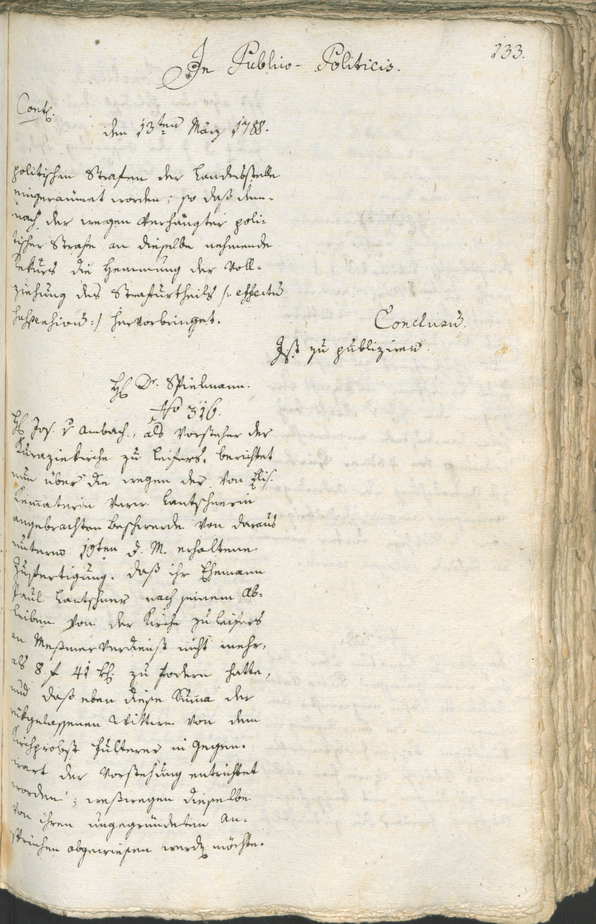 133.
In Publico-Politicis.
Cont.
den 13ten März 1788.
politischen Strafen der Landesstelle
eingeraumet worden; so daß dem-
nach der wegen verhängter poli-
tischer Strafe an dieselbe nehmende
Rekurs die Hemmung der Voll-
ziehung des Strafurtheils /: effectum
suspensivum :/ hervorbringet.
Conclusum.
Ist zu publiziren.
H. Dr. Spielmann.
No 316.
H. Jos. v Ambach, als Vorsteher der
Kuraziekirche zu Leifers, berichtet
nun über die wegen der von Elis.
verw. Lantschnerin
angebrachten Beschwerde von daraus
unterm 10ten d. M. erhaltene
Zufertigung: daß ihr Ehemann
Paul Lantschner nach seinem Ab-
leiben von der Kirche zu Leifers
an Meßnerverdienst nicht mehr,
als 8 f 41 kr. zu fodern hatte,
und daß eben diese Summa der
rükgelassenen Wittwe von dem
Kirchprobst Fulterer in Gegen-
wart der Vorstehung entrichtet
worden; weßwegen dieselbe
von ihren ungegründeten An-
sprüchen abgewiesen werden möchte.